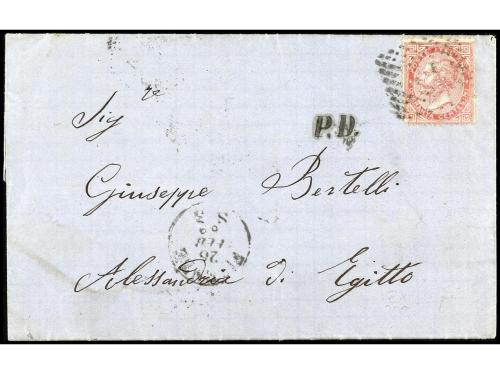 Sig re
P.D.
Giuseppe Bertelli
Alessandria di Egitto
20
FEB